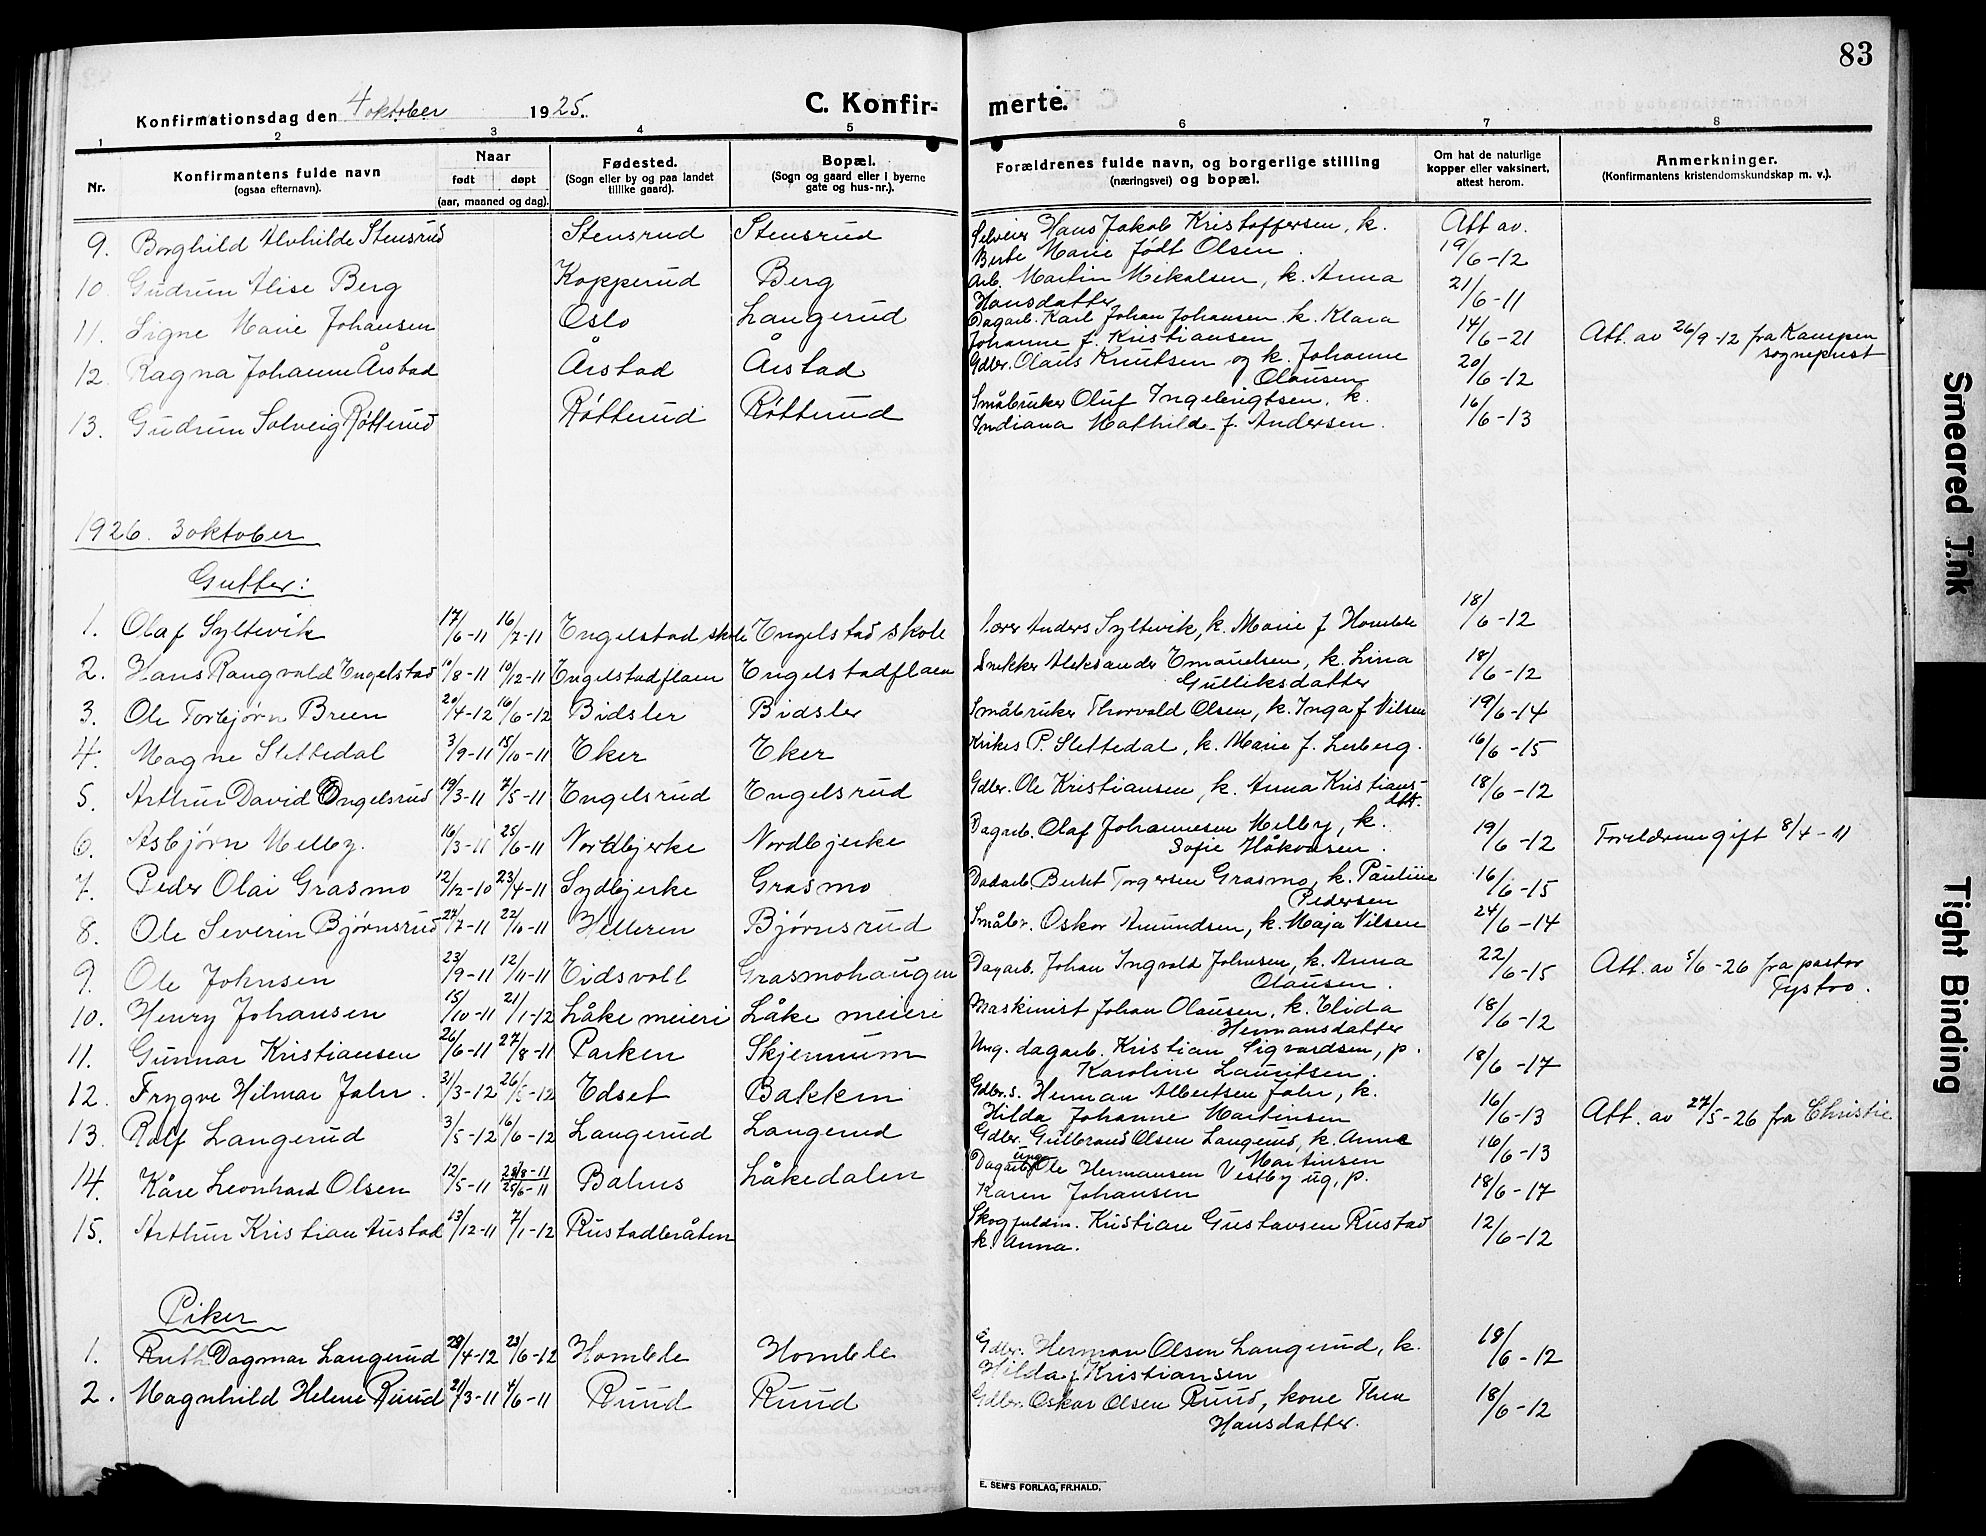 83
Konfirmationsdag den 4 oktober 1925. C. Konfir- merte.
1 2 3 4 5 6 7 8
Nr. Konfirmantens fulde navn (ogsaa efternavn). Naar født døpt (aar, maaned og dag). Fødested. (Sogn eller by og paa landet tillike gaard). Bopæl. (Sogn og gaard eller i byerne gate og hus-nr.). Forældrenes fulde navn, og borgerlige stilling (næringsvei) og bopæl. Om hat de naturlige kopper eller vaksinert, attest herom. Anmerkninger. (Konfirmantens kristendomskundskap m. v.).
9. Borghild Alvhilde Stensrud Stensrud Stensrud Selveier Hans Jakob Kristoffersen, k. Att av.
Berte Marie født Olsen. 19/6-12
10. Gudrun Alise Berg Kopperud Berg Arb. Martin Mikalsen, k. Anna 21/6-11
Hansdatter
11. Signe Marie Johansen Oslo Langerud Dagarb. Karl Johan Johansen k. Klara 14/6-21 Att. av 26/9-12 fra Kampen
Johanne f. Kristiansen sogneprest
12. Ragna Johanne Årstad Årstad Årstad Gdbr. Olaus Knutsen og k. Johanne 20/6-12
Olausen
13. Gudrun Solveig Røtterud Røtterud Røtterud Småbruker Oluf Ingebrigtsen, k. 16/6-13
Indiana Mathilde f. Andersen.
1926. 3 oktober
Gutter:
1. Olaf Syltevik 17/6-11 16/7-11 Engelstad skole Engelstad skole Lærer Anders Syltevik, k. Marie f Homble 18/6-12
2. Hans Rangvald Engelstad 10/8-11 10/12-11 Engelstadflaen Engelstadflaen Snekker Aleksander Emanuelsen, k. Lina 18/6-12
Gulliksdatter
3. Ole Torbjørn Breen 20/4-12 16/6-12 Bidsler Bidsler Småbruker Thorvald Olsen, k. Inga f Nilsen 19/6-14
4. Magne Slettedal 3/9-11 15/10-11 Eker Eker P. Slettedal, k. Marie f. Lerberg. 16/6-15
5. Arthur David Engelsrud 19/3-11 7/5-11 Engelsrud Engelsrud Gdbr. Ole Kristiansen, k. Anna Kristians- 18/6-12
dtt.
6. Asbjørn Melby. 16/3-11 25/6-11 Nordbjerke Nordbjerke Dagarb. Olaf Johannesen Melby, k. 19/6-12 Foreldrene gift 8/4-11
Sofie Håkonsen.
7. Peder Olai Grasmo 12/12-10 23/4-11 Sydbjerke Grasmo Dadarb. Berket Torgersen Grasmo, k. Pauline 16/6-15
Pedersen
8. Ole Severin Bjørnsrud 27/7-11 22/10-11 Helleren Bjørnsrud Småbr. Oskar Amundsen, k. Maja Nilsen 24/6-14
9. Ole Johnsen 23/9-11 12/11-11 Eidsvoll Grasmohaugen Dagarb. Johan Ingvald Johnsen, k. Anna 22/6-15 Att. av 5/6-26 fra pastor
Olausen. Tystvo.
10. Henry Johansen 15/10-11 21/1-12 Låke meieri Låke meieri Maskinist Johan Olausen, k. Elida 18/6-12
Hermansdatter
11. Gunnar Kristiansen 26/6-11 27/8-11 Parken Skjennum Ung. dagarb. Kristian Sigvardsen, p. 18/6-17
Karoline Lauritsen.
12. Trygve Hilmar Jahr. 31/3-12 26/5-12 Edset Bakken Gdbr.s. Herman Albertsen Jahr, k. 16/6-13 Att. av 27/5-26 fra Christie
Hilda Johanne Martinsen
13. Ralf Langerud 3/5-12 16/6-12 Langerud Langerud Gdbr. Gulbrand Olsen Langerud, k. Anne 16/6-13
Martinsen
14. Kåre Leonhard Olsen 12/5-11 28/8-11 25/6-11 Bahus Låkedalen Dagarb. ungk. Ole Hermansen Vestby ug, p. 18/6-17
Karen Johansen
15. Arthur Kristian Austad 13/12-11 7/1-12 Rustadbråten Skogfuldm. Kristian Gustavsen Rustad 12/6-12
k. Anna.
Piker
1. Ruth Dagmar Langerud 29/4-12 23/6-12 Homble Homble Gdbr. Herman Olsen Langerud, k. 18/6-12
Hilda f Kristiansen
2. Magnhild Helene Ruud 21/3-11 4/6-11 Ruud Ruud Gdbr. Oskar Olsen Ruud, kone Thea 18/6-12
Hansdatter.
E. SEM'S FORLAG, FR.HALD.
Smeared Ink
Tight Binding